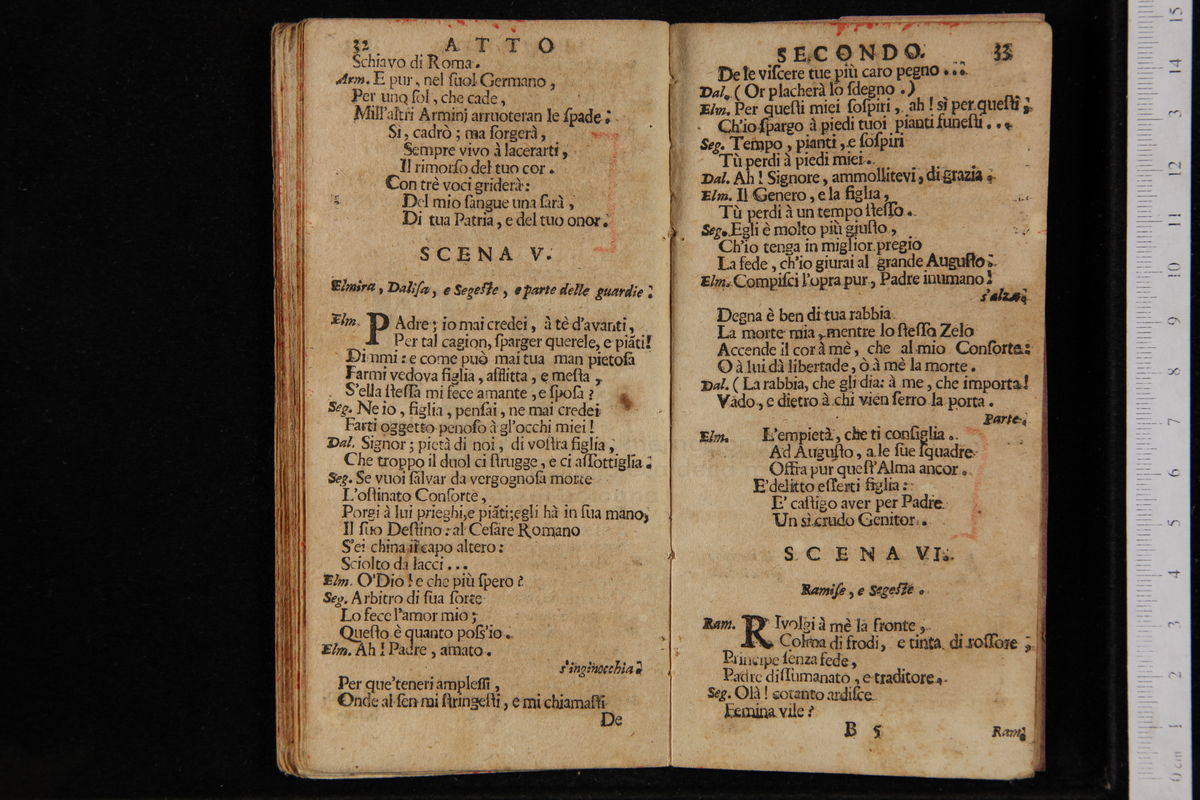 32 ATTO
Schiavo di Roma.
Arm. E pur, nel ſuol Germano,
Per uno ſol, che cade,
Mill'altri Arminj arruoteran le ſpade:
Si, cadrò; ma ſorgerà,
Sempre vivo à lacerarti,
Il rimorſo del tuo cor.
Con trè voci griderà:
Del mio ſangue una ſarà,
Di tua Patria, e del tuo onor.
SCENA V.
Elmira, Daliſa, e Segeſte, e parte delle guardie.
Elm. PAdre; io mai credei, à tè d'avanti,
Per tal cagion, ſparger querele, e piãti!
Dimmi: e come può mai tua man pietoſa
Farmi vedova figlia, afflitta, e meſta,
S'ella ſteſſa mi fece amante, e ſpoſa?
Seg. Ne io, figlia, penſai, ne mai credei
Farti oggetto penoſo à gl'occhi miei!
Dal. Signor; pietà di noi, di voſtra figlia,
Che troppo il duol ci ſtrugge, e ci aſſottiglia.
Seg. Se vuoi ſalvar da vergognoſa morte
L'oſtinato Conſorte,
Porgi à lui prieghi,e piãti;egli hà in ſua mano,
Il ſuo Deſtino: al Ceſare Romano
S'ei china il capo altero:
Sciolto da lacci...
Elm. O'Dio! e che più ſpero?
Seg. Arbitro di ſua ſorte
Lo fece l'amor mio;
Queſto è quanto poſs'io.
Elm. Ah! Padre, amato.
s'inginocchia.
Per que'teneri ampleſſi,
Onde al ſen mi ſtringeſti, e mi chiamaſti
De
SECONDO. 33
De le viſcere tue più caro pegno...
Dal. (Or placherà lo ſdegno.)
Elm. Per queſti miei ſoſpiri, ah! sì per queſti,
Ch'io ſpargo à piedi tuoi pianti funeſti...
Seg. Tempo, pianti, e ſoſpiri
Tù perdi à piedi miei.
Dal. Ah! Signore, ammollitevi, di grazia.
Elm. Il Genero, e la figlia,
Tù perdi à un tempo ſteſſo.
Seg. Egli è molto più giuſto,
Ch'io tenga in miglior pregio
La fede, ch'io giurai al grande Auguſto.
Elm. Compiſci l'opra pur, Padre inumano!
s'alza.
Degna è ben di tua rabbia
La morte mia, mentre lo ſteſſo Zelo
Accende il cor à mè, che al mio Conſorte:
O à lui dà libertade, ò à mè la morte.
Dal. (La rabbia, che gli dia: à me, che importa!
Vado, e dietro à chi vien ſerro la porta.
Parte.
Elm. L'empietà, che ti conſiglia.
Ad Auguſto, a le ſue ſquadre
Offra pur queſt'Alma ancor.
E'delitto eſſerti figlia:
E' caſtigo aver per Padre
Un sì crudo Genitor.
SCENA VI.
Ramiſe, e Segeſte.
Ram. RIvolgi à mè la fronte,
Colma di frodi, e tinta di roſſore;
Principe ſenza fede,
Padre diſſumanato, e traditore.
Seg. Olà! cotanto ardiſce
Femina vile?
B 5 Ram.